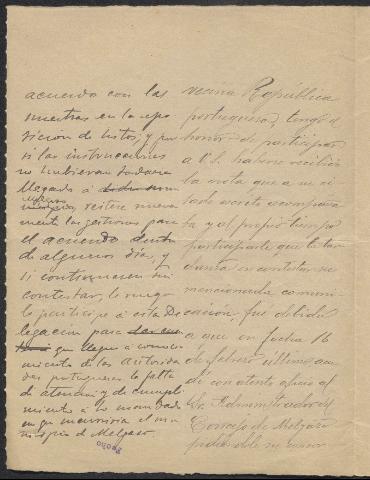 acuerdo con las
nuestras en la expo
sición de listas; y por
si las instrucciones
no hubieran todavia
llegado á
reitere nueva
mente las gestiones para
el acuerdo dentro
de algunos dias, y
si continuasen sin
contestar, le ruego
lo participe á esta De
legación para
que llegue á conoci
miento de las autorida
des portuguesas la falta
de atencion y de cumpli
miento á lo mandado
en que incurriria el mu
nicipio de Melgaso.
vecina República
portuguesa, tengo el
honor de participar
á V.S. haberse recibido
la nota que a su ci
tado escrito acompaña
ba y al propio tiempo
participarle que la tar
danza en contestar su
mencionada comuni
cación, fué debida
a que en fecha 16
de febrero último, aun
de con atento oficio al
Sr. Administrador del
Concejo de Melgazo
pidiendole su